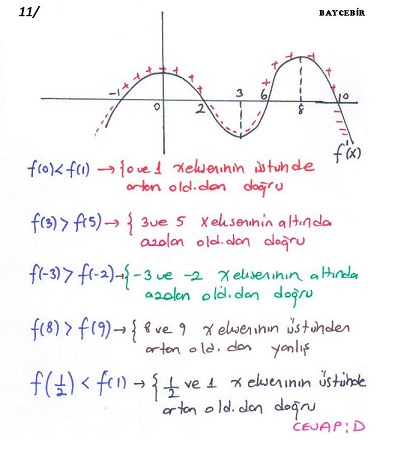 11/ BAYCEBİR
-1 0 2 3 6 8 10
f'(x)
f(0)<f(1) → { 0 ve 1 x ekseninin üstünde
artan old.dan doğru
f(3) > f(5) → { 3 ve 5 x ekseninin altında
azalan old.dan doğru
f(-3) > f(-2) → { -3 ve -2 x ekseninin altında
azalan old.dan doğru
f(8) > f(9) → { 8 ve 9 x ekseninin üstünden
artan old.dan yanlış
f(1/2) < f(1) → { 1/2 ve 1 x ekseninin üstünde
artan old.dan doğru
CEVAP: D